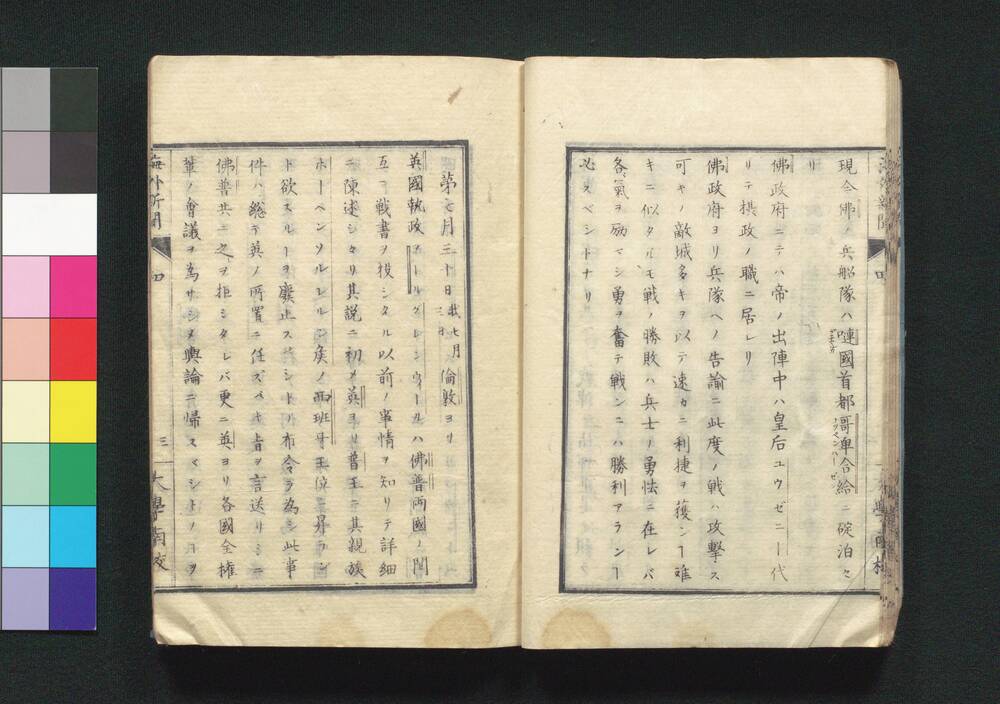 現今佛ノ兵船隊ハ嗹國首都哥卑合給ニ碇泊セ
リ
佛政府ニテハ帝ノ出陣中ハ皇后ユウゼニー代
リテ摂政ノ職ニ居レリ
佛政府ヨリ兵隊ヘノ告諭ニ此度ノ戦ハ攻撃ス
可キノ敵城多キヲ以テ速カニ利捷ヲ獲ンヿ難
キニ似タルモ戦ノ勝敗ハ兵士ノ勇怯ニ在レバ
各氣ヲ励マシ勇ヲ奮テ戦ンニハ勝利アランヿ
必スベシトナリ
海外新聞
四
三
大學南校
第七月三十日我七月三日倫敦ヨリ
英國執政アールグレンウィールハ佛普両國ノ間
互ニ戦書ヲ投シタル以前ノ事情ヲ知リテ詳細
ニ陳述シタリ其説ニ初メ英ヨリ普王ニ其親族
ホーヘンソルレルン侯ノ西班牙王位ニ昇ラン
ト欲スルヿヲ廢止スベシトノ布令ヲ為シ此事
件ハ総テ英ノ所置ニ任ズベキ旨ヲ言送リシニ
佛普共ニ之ヲ拒ミタレバ更ニ英ヨリ各國全権
輩ノ會議ヲ為サシメ輿論ニ帰スベシトノヿヲ